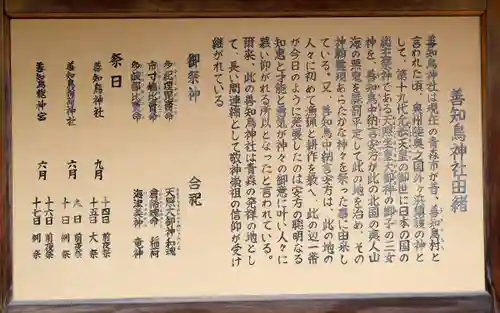 善知鳥神社由緒
善知鳥神社は現在の青森市が昔、善知鳥村と
言われた頃、奥州陸奥之国外ヶ浜鎮護の神と
して、第十九代允恭天皇の御世に日本の国の
総主祭神である天照坐皇大御神の御子の三女
神を、善知鳥中納言安方が此の北国の夷人山
海の悪鬼を誅罰平定して此の地を治め、その
神願霊現あらたかな神々を祭った事に由来し
ている。又、善知鳥中納言安方は、此の地の
人々に初めて漁猟と耕作を教へ、此の辺一帯
が今日のように発展したのは安方の聡明なる
知恵と才能と勇気が神々の御意に叶い人々に
慕い仰がれる所以となったと言われている。
爾来、此の善知鳥神社は青森の発祥の地とし
て、長い間連綿として敬神崇祖の信仰が受け
継がれている
御祭神
多紀理毘売命
市寸嶋比売命
多岐都比売命
合祀
天照大御神 和魂
倉稲魂命 稲荷
海津美神 竜神
祭日
善知鳥神社 九月 十四日 前夜祭
十五日 大祭
善知鳥稲荷神社 六月 九日 前夜祭
十日 例祭
善知鳥龍神宮 六月 十六日 前夜祭
十七日 例祭